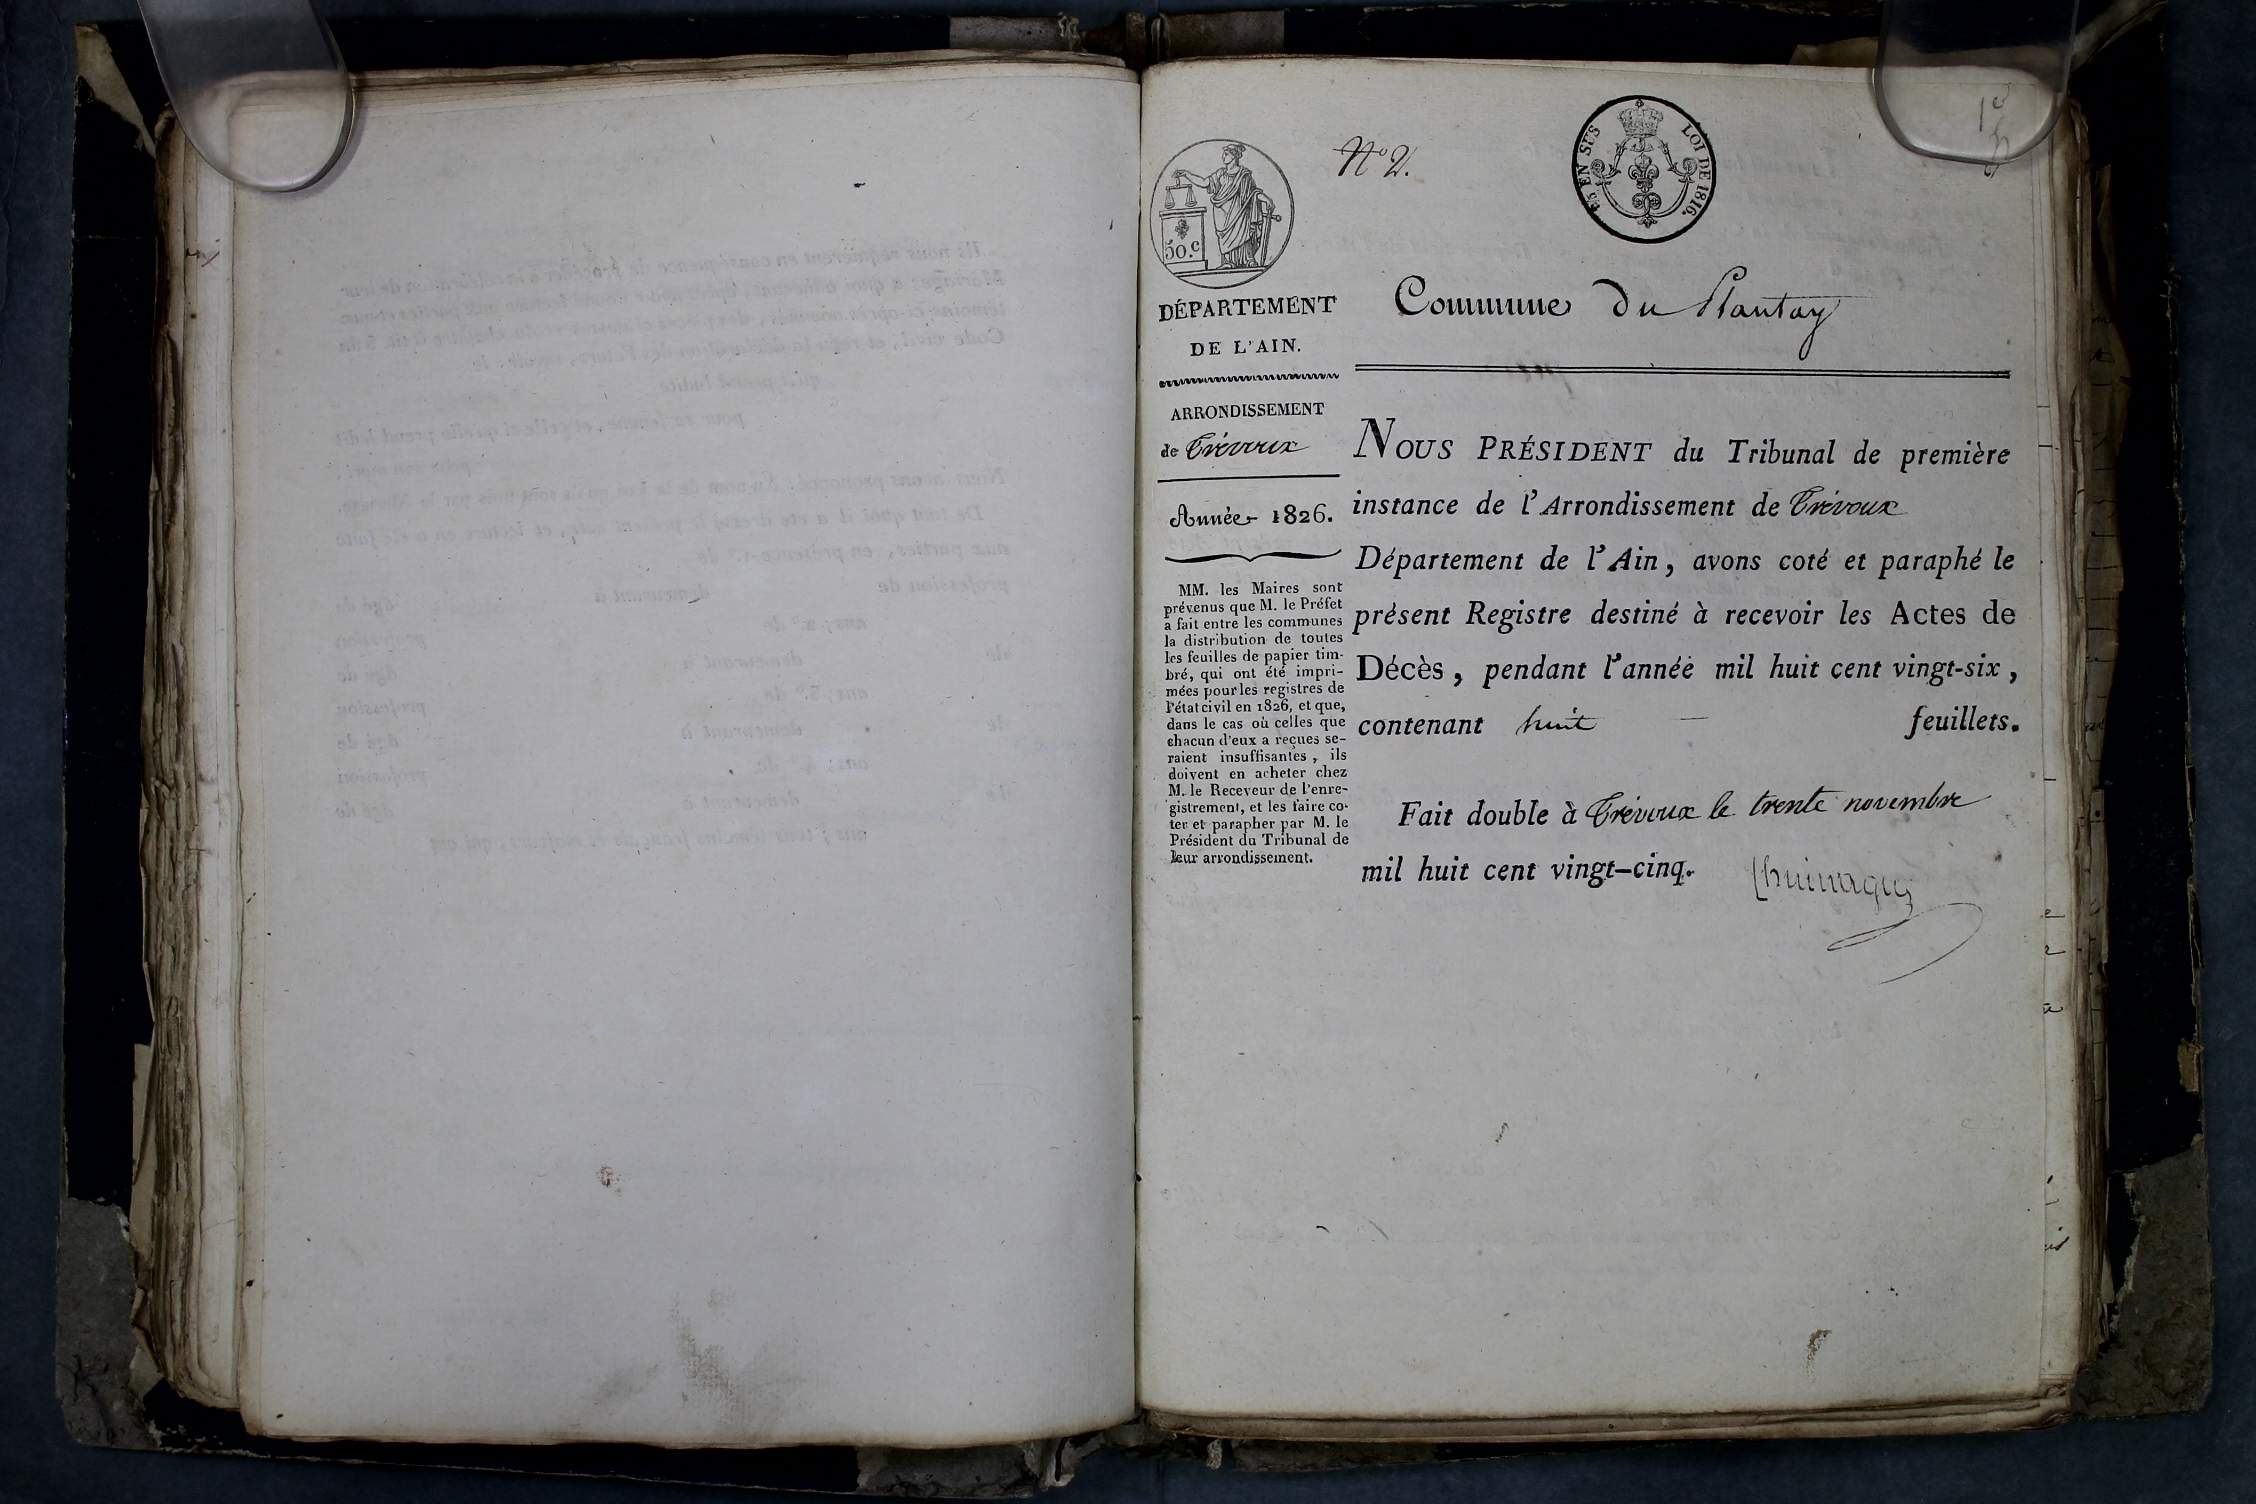 1e
N° 2.
EN SUS
LOI DE 1816.
50.c
DÉPARTEMENT
DE L'AIN.
ARRONDISSEMENT
de Trévoux
Année 1826.
MM. les Maires sont
prévenus que M. le Préfet
a fait entre les communes
la distribution de toutes
les feuilles de papier tim-
bré, qui ont été impri-
mées pour les registres de
l'état civil en 1826, et que,
dans le cas où celles que
chacun d'eux a reçues se-
raient insuffisantes, ils
doivent en acheter chez
M. le Receveur de l'enre-
gistrement, et les faire co-
ter et parapher par M. le
Président du Tribunal de
leur arrondissement.
Commune du Plantay
NOUS PRÉSIDENT du Tribunal de première
instance de l'Arrondissement de Trévoux
Département de l'Ain, avons coté et paraphé le
présent Registre destiné à recevoir les Actes de
Décès, pendant l'année mil huit cent vingt-six,
contenant huit — feuillets.
Fait double à Trévoux le trente novembre
mil huit cent vingt-cinq.